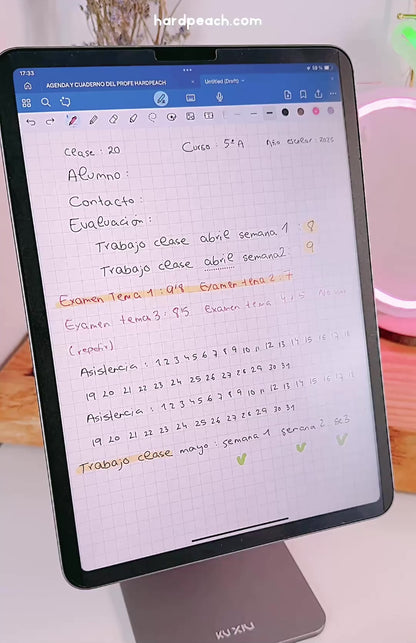 hardpeach.com
17:33
59 %
AGENDA Y CUADERNO DEL PROFE HARDPEACH
Untitled (Draft)
Clase : 20 Curso : 5º A Año escolar : 2025
Alumno :
Contacto :
Evaluación :
Trabajo clase abril semana 1 : 8
Trabajo clase abril semana 2 : 9
Examen Tema 1 : 9'8 Examen tema 2 : 7
Examen tema 3 : 8'5 Examen tema 4 y 5
(repetir)
Asistencia : 1 2 3 4 5 6 7 8 9 10 11 12 13 14 15 16 17 18
19 20 21 22 23 24 25 26 27 28 29 30 31
Asistencia : 1 2 3 4 5 6 7 8 9 10 11 12 13 14 15 16 17 18
19 20 21 22 23 24 25 26 27 28 29 30 31
Trabajo clase mayo : semana 1 semana 2 se 3
KUXIU